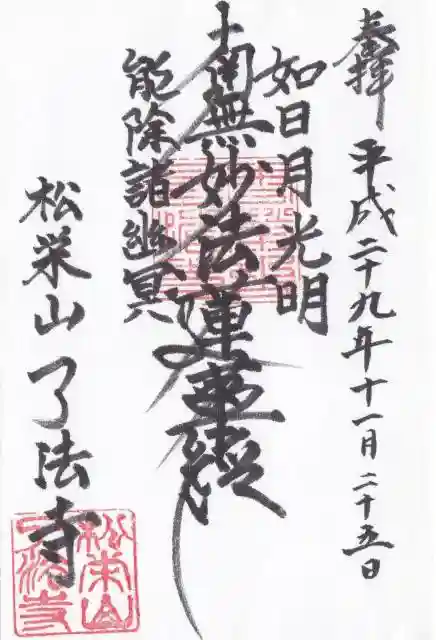 奉拝 平成二十九年十一月二十五日
如日月光明
南無妙法蓮華経
能除諸幽冥
松栄山了法寺
松栄山了法寺